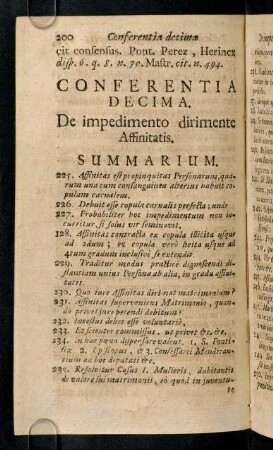 200 Conferentia decima
cit consensus. Pont. Perez, Herinex
disp. 6. q. 8. n. 70. Mastr. cit. n. 494.
CONFERENTIA
DECIMA.
De impedimento dirimente
Affinitatis.
SUMMARIUM.
225. Affinitas est propinquitas Personarum, qua-
rum una cum consanguinea alterius habuit co-
pulam carnalem.
226. Debuit esse copula carnalis perfecta; unde
227. Probabiliter hoc impedimentum non in-
curritur, si solus vir seminavit.
228. Affinitas contracta ex copula illicita usque
ad 2dum; ex copula verò licita usque ad
4tum gradum inclusivè se extendit.
229. Traditur modus practicè dignoscendi di-
stantiam unius Personæ ab alia, in gradu affini-
tatis.
230. Quo jure Affinitas dirimat matrimonium?
231. Affinitas superveniens Matrimonio, quan-
do privet jure petendi debitum?
232. Incestus debet esse voluntariè,
233. Et scienter commissus, ut privet &c. &c.
234. In hac pœna dispensare valent. 1. S. Ponti-
fex 2. Episcopus, & 3. Confessarii Mendican-
tium ad hoc deputati &c.
235. Resolvitur Casus 1. Mulieris, dubitantis
de valore sui matrimonii, eò quòd in juventu-
te